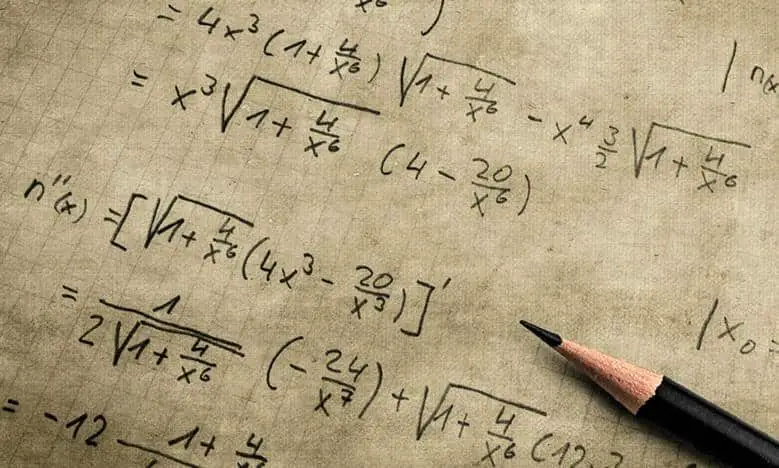 x⁶ )
= 4x³ (1 + 4/x⁶) √(1 + 4/x⁶) - x⁴ 3/2 √(1 + 4/x⁶)
| n(x
= x³ √(1 + 4/x⁶) (4 - 20/x⁶)
n''(x) = [√(1 + 4/x⁶) (4x³ - 20/x³)]'
= 1/(2√(1 + 4/x⁶)) (- 24/x⁷) + √(1 + 4/x⁶) (12
| x₀ =
= -12 1 + 4/x⁶